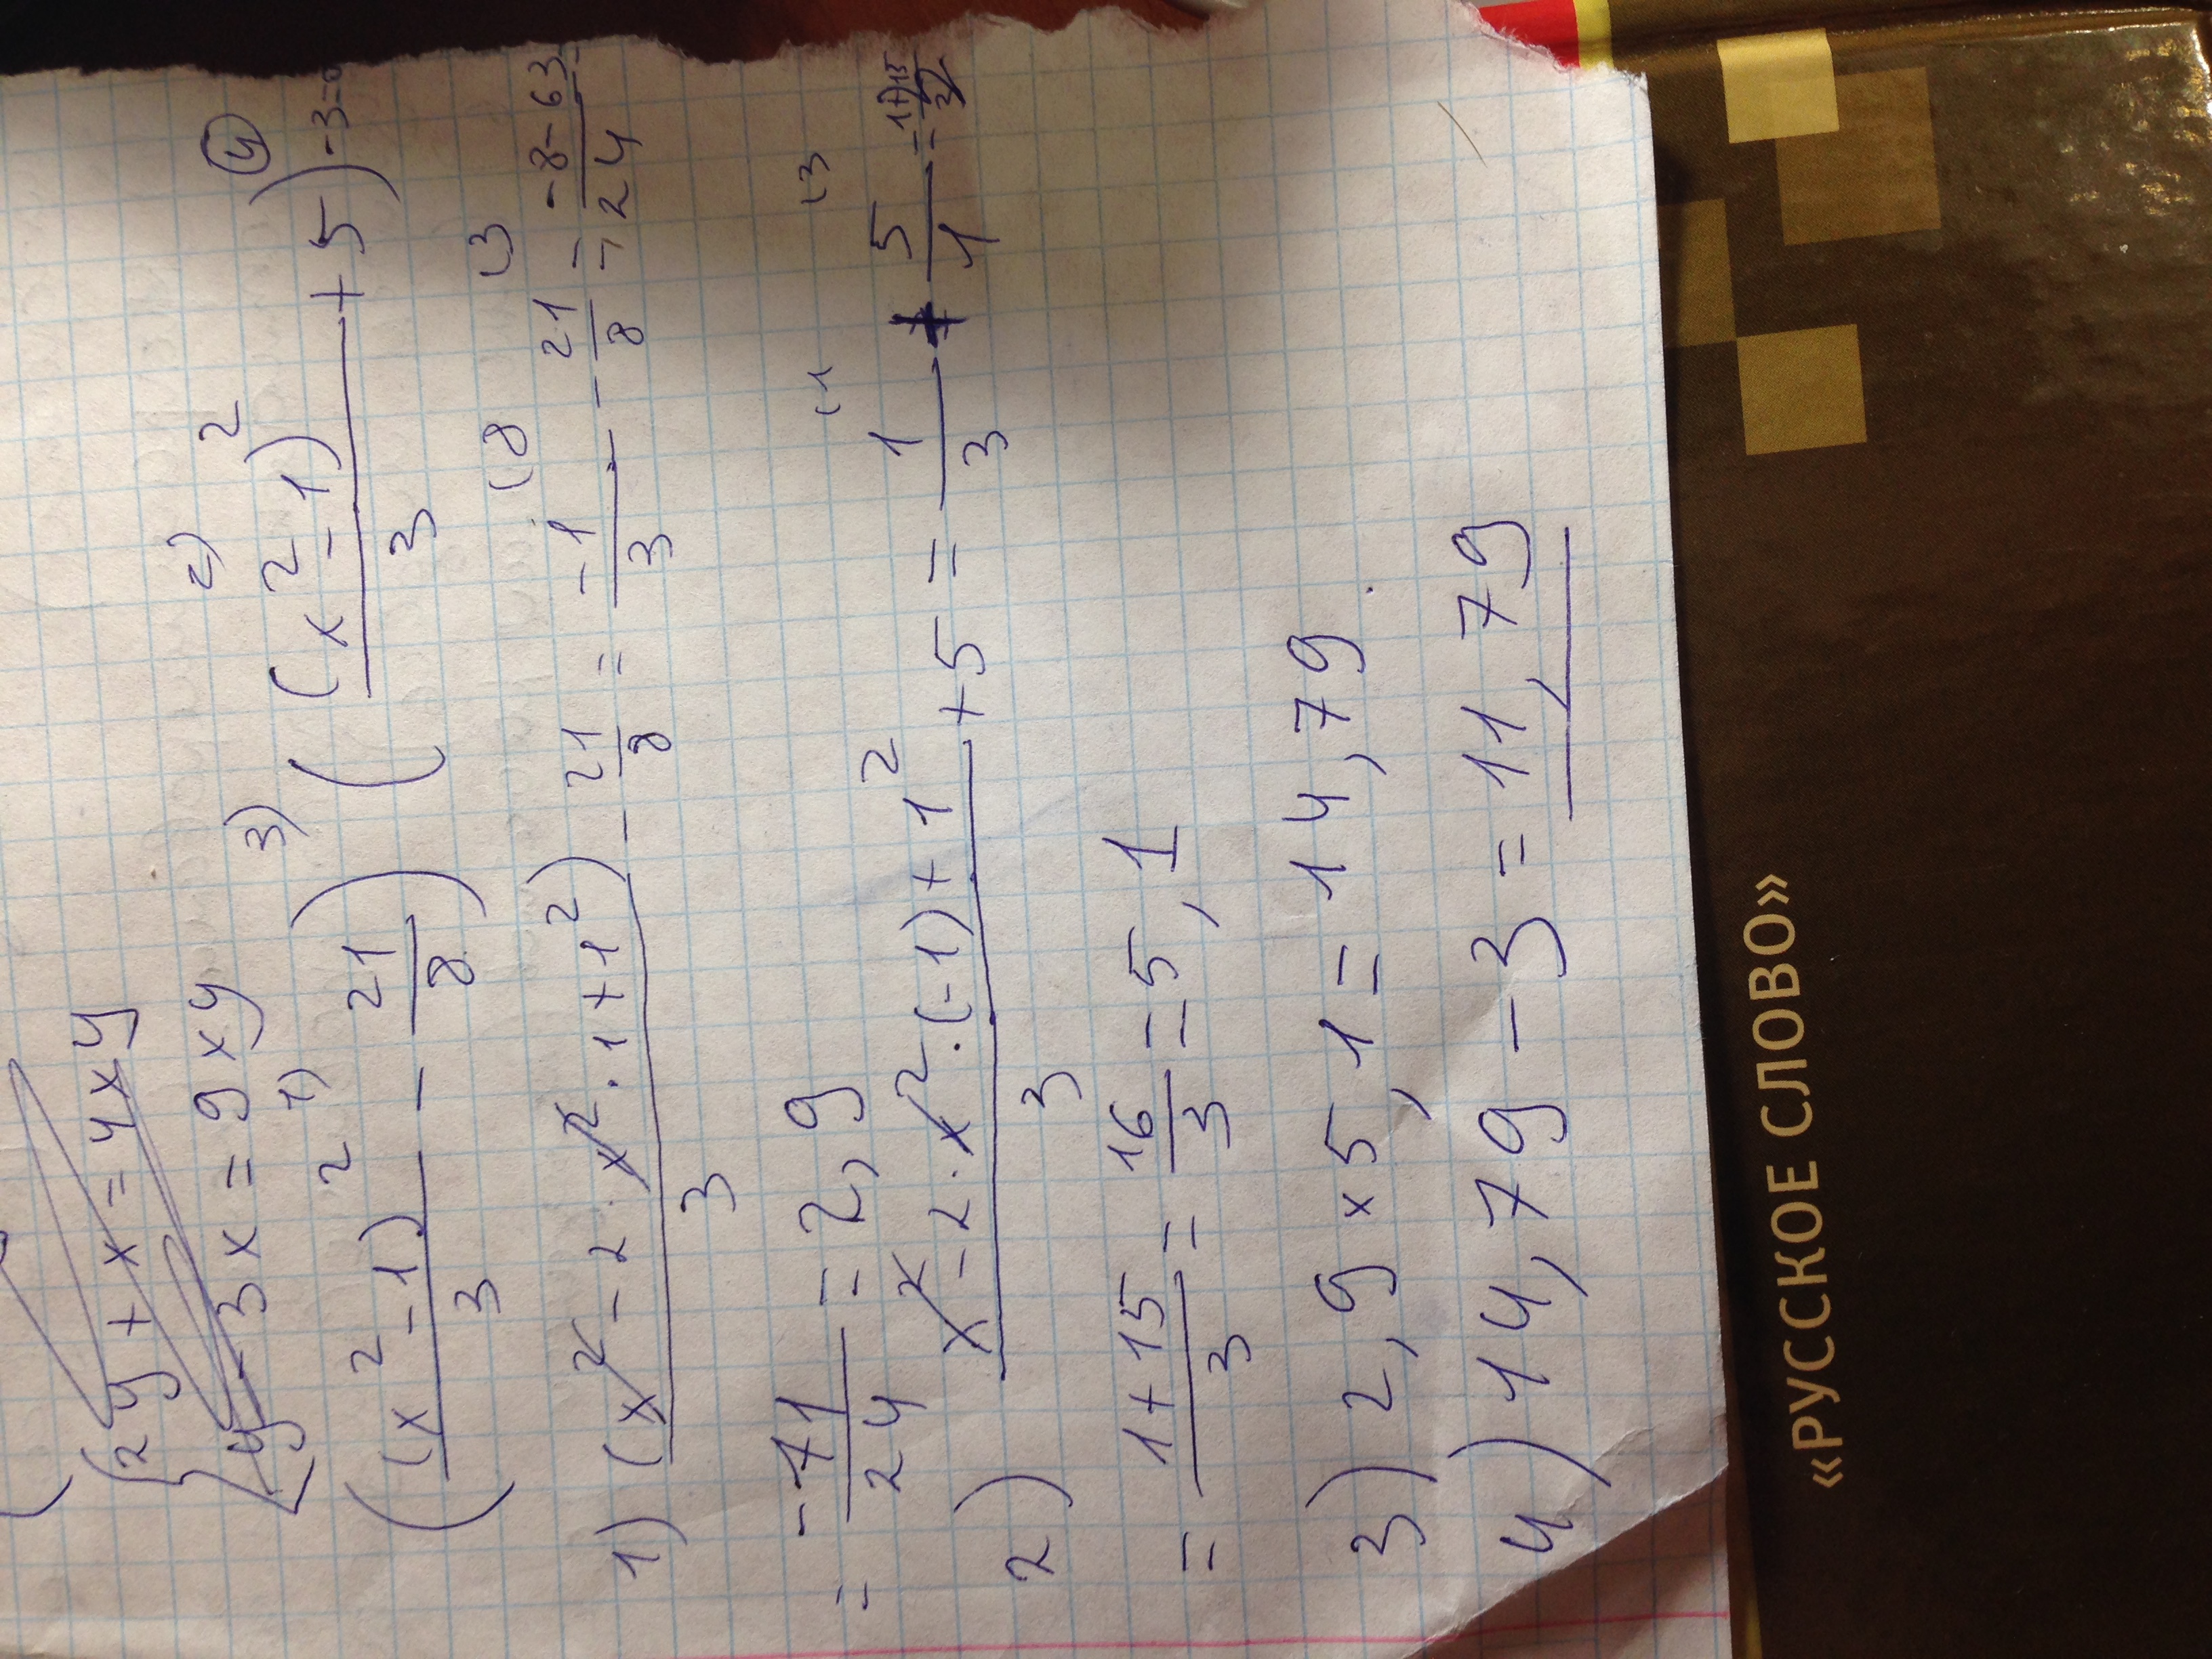 {2y + x = 4xy
{y - 3x = 9xy
1) 3) 2) (4)
((x² - 1)²/3 - 21/8) ((x² - 1)²/3 + 5) - 3 =
(8 (3
1) (x² - 2 · x² · 1 + 1²)/3 - 21/8 = -1/3 - 21/8 = -8-63/24 =
= -71/24 = 2,9
(1 (3
2) x² - 2 · x² · (-1) + 1²/3 + 5 = 1/3 + 5/1 =
= 1+15/3 = 16/3 = 5,1
3) 2,9 × 5,1 = 14,79
4) 14,79 - 3 = 11,79
«РУССКОЕ СЛОВО»